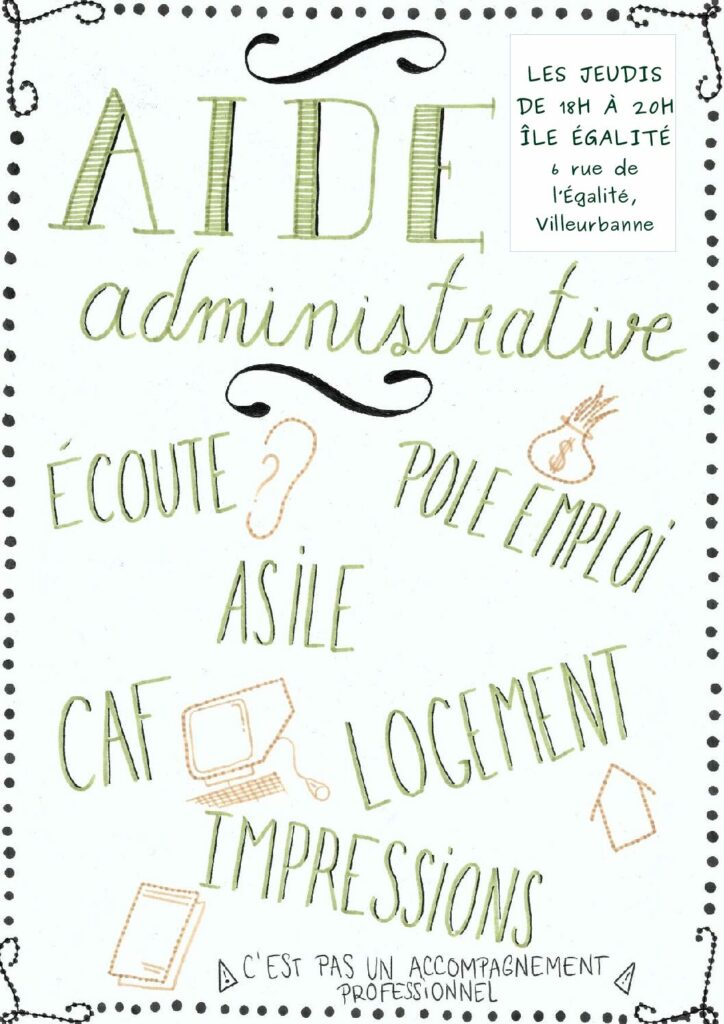 AIDE
administrative
LES JEUDIS
DE 18H À 20H
ÎLE ÉGALITÉ
6 rue de
l'Égalité,
Villeurbanne
ÉCOUTE
POLE EMPLOI
$
ASILE
CAF
LOGEMENT
IMPRESSIONS
! C'EST PAS UN ACCOMPAGNEMENT !
PROFESSIONNEL